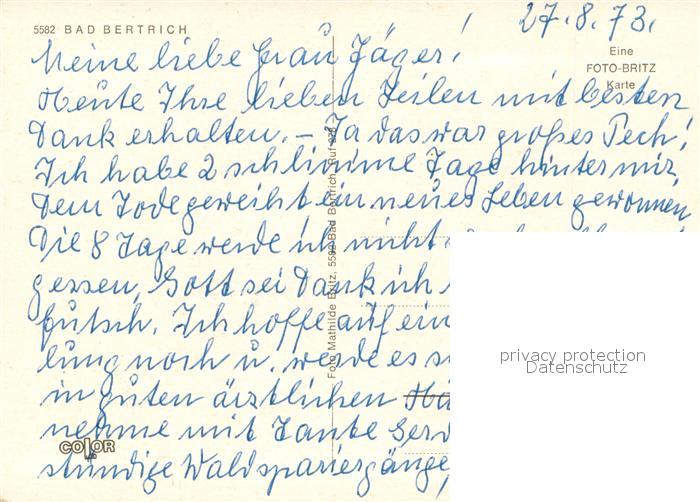 5582 BAD BERTRICH
27.8.73.
Eine
FOTO-BRITZ
Karte
Meine liebe Frau Jäger!
Heute Ihre lieben Zeilen mit besten
Dank erhalten. – Ja das war großes Pech!
Ich habe 2 schlimme Tage hinter mir
Dem Tode geweiht ein neues Leben gewonnen
Die 8 Tage werde ich nicht
gessen, Gott sei Dank ich
futsch. Ich hoffe auf ein
lung noch u. werde es
in guten ärztlichen
nehme mit Tante Gerd
stündige Waldspariergänge,
Foto Mathilde Britz, 5582 Bad Bertrich, Ruf
COLOR
privacy protection
Datenschutz